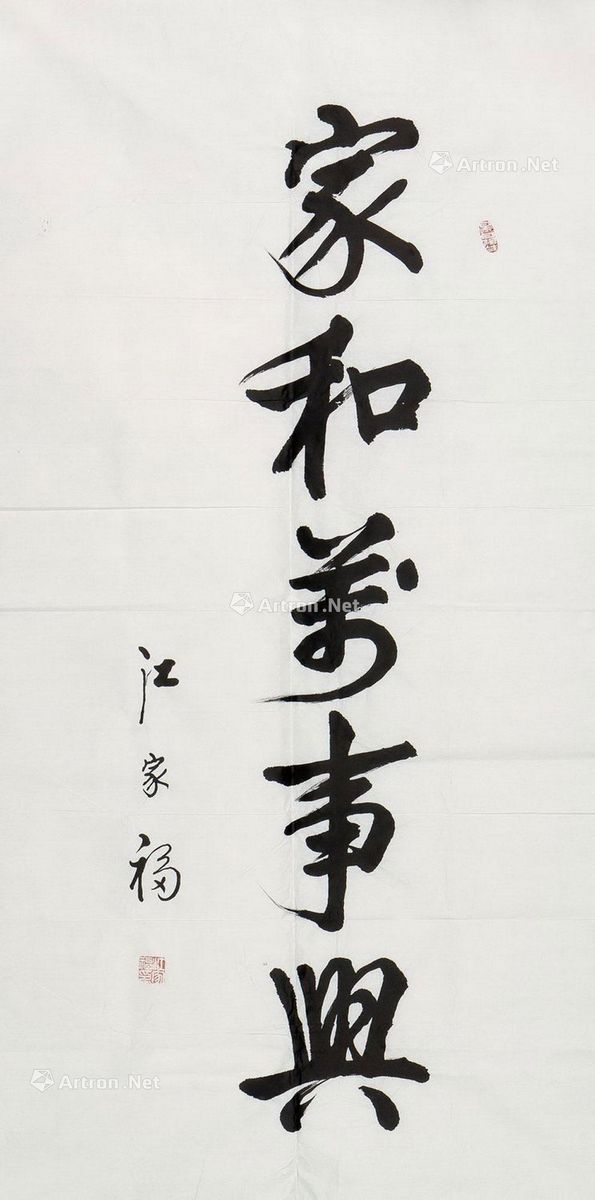 家和萬事興
江家福
Artron.Net
Artron.Net
Artron.Net